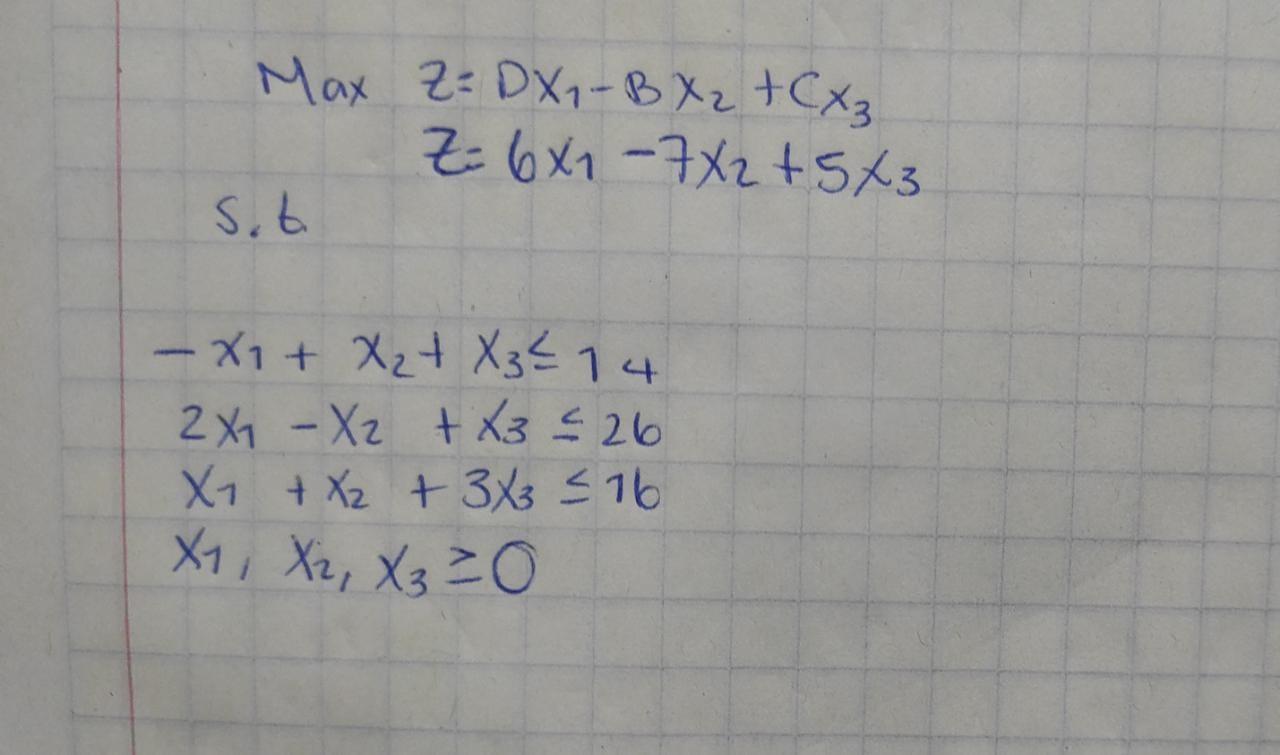 Max Z= DX₁ - BX₂ + CX₃
Z= 6X₁ - 7X₂ + 5X₃
S.t
- X₁ + X₂ + X₃ ≤ 14
2X₁ - X₂ + X₃ ≤ 26
X₁ + X₂ + 3X₃ ≤ 16
X₁, X₂, X₃ ≥ 0